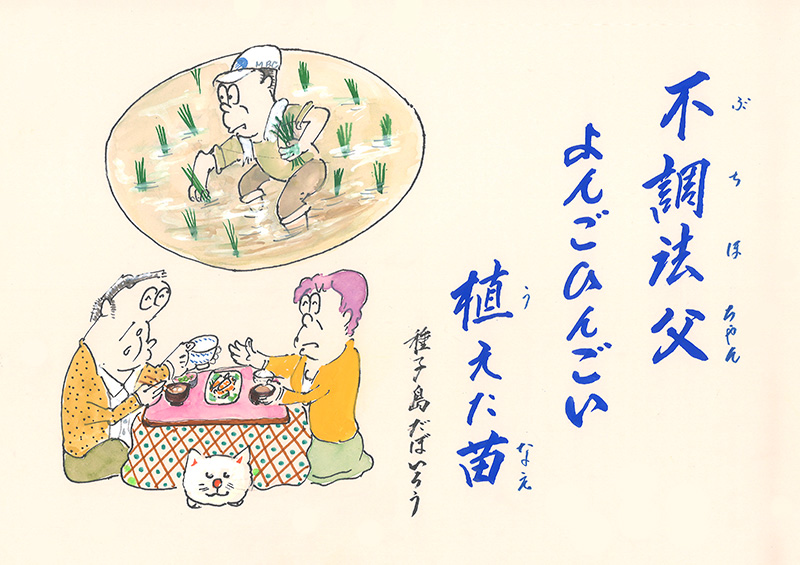 不調法父
ぶちほちゃん
よんごひんごい
植えた苗
う
なえ
種子島だぼいろう
MBC